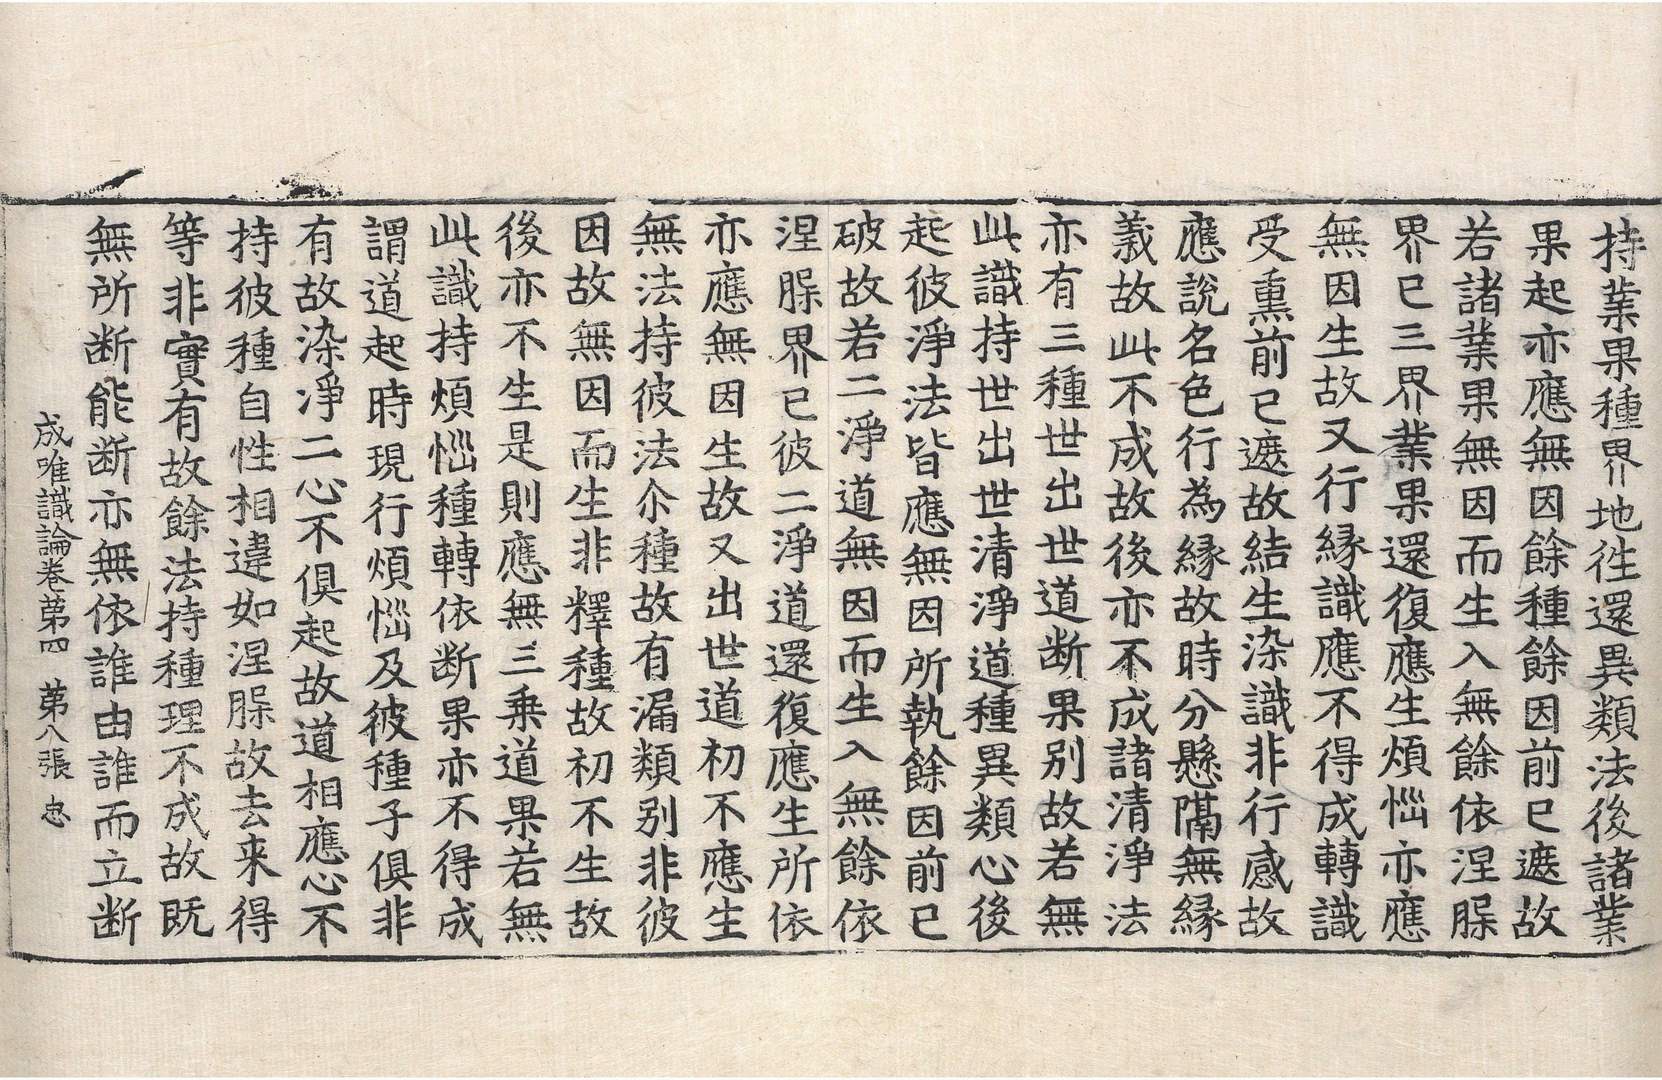 持業果種界地徃還異類法後諸業
果起亦應無因餘種餘因前已遮故
若諸業果無因而生入無餘依涅槃
界已三界業果還復應生煩惱亦應
無因生故又行縁識應不得成轉識
受熏前已遮故結生染識非行感故
應說名色行為縁故時分懸隔無縁
義故此不成故後亦不成諸清淨法
亦有三種世出世道断果別故若無
此識持世出世清淨道種異類心後
起彼淨法皆應無因所執餘因前已
破故若二淨道無因而生入無餘依
涅槃界已彼二淨道還復應生所依
亦應無因生故又出世道初不應生
無法持彼法尒種故有漏類别非彼
因故無因而生非釋種故初不生故
後亦不生是則應無三乗道果若無
此識持煩惱種轉依断果亦不得成
謂道起時現行煩惱及彼種子俱非
有故染淨二心不俱起故道相應心不
持彼種自性相違如涅槃故去来得
等非實有故餘法持種理不成故既
無所断能断亦無依誰由誰而立断
成唯識論巻第四 第八張 忠